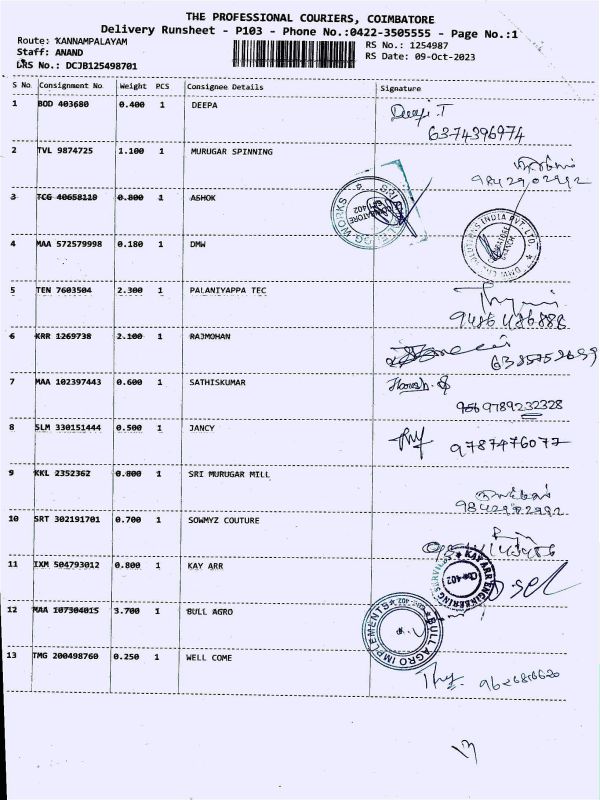 THE PROFESSIONAL COURIERS, COIMBATORE
Delivery Runsheet - P103 - Phone No.:0422-3505555 - Page No.:1
Route: KANNAMPALAYAM
RS No.: 1254987
Staff: ANAND
RS Date: 09-Oct-2023
DRS No.: DCJB125498701
S No Consignment No Weight PCS Consignee Details Signature
1 BOD 403680 0.400 1 DEEPA
Deepi.T
6374396974
2 TVL 9874725 1.100 1 MURUGAR SPINNING
9842902992
3 TCG 40658110 0.800 1 ASHOK
4 MAA 572579998 0.180 1 DMW
5 TEN 7603504 2.300 1 PALANIYAPPA TEC
9486486888
6 KRR 1269738 2.100 1 RAJMOHAN
7 MAA 102397443 0.600 1 SATHISKUMAR
9789232328
8 SLM 330151444 0.500 1 JANCY
9787476077
9 KKL 2352362 0.800 1 SRI MURUGAR MILL
9842902992
10 SRT 302191701 0.700 1 SOWMYZ COUTURE
11 IXM 504793012 0.800 1 KAY ARR
KAY ARR ENGINEERING SERVICES
12 MAA 107304015 3.700 1 BULL AGRO
BULL AGRO IMPLEMENTS
13 TMG 200498760 0.250 1 WELL COME